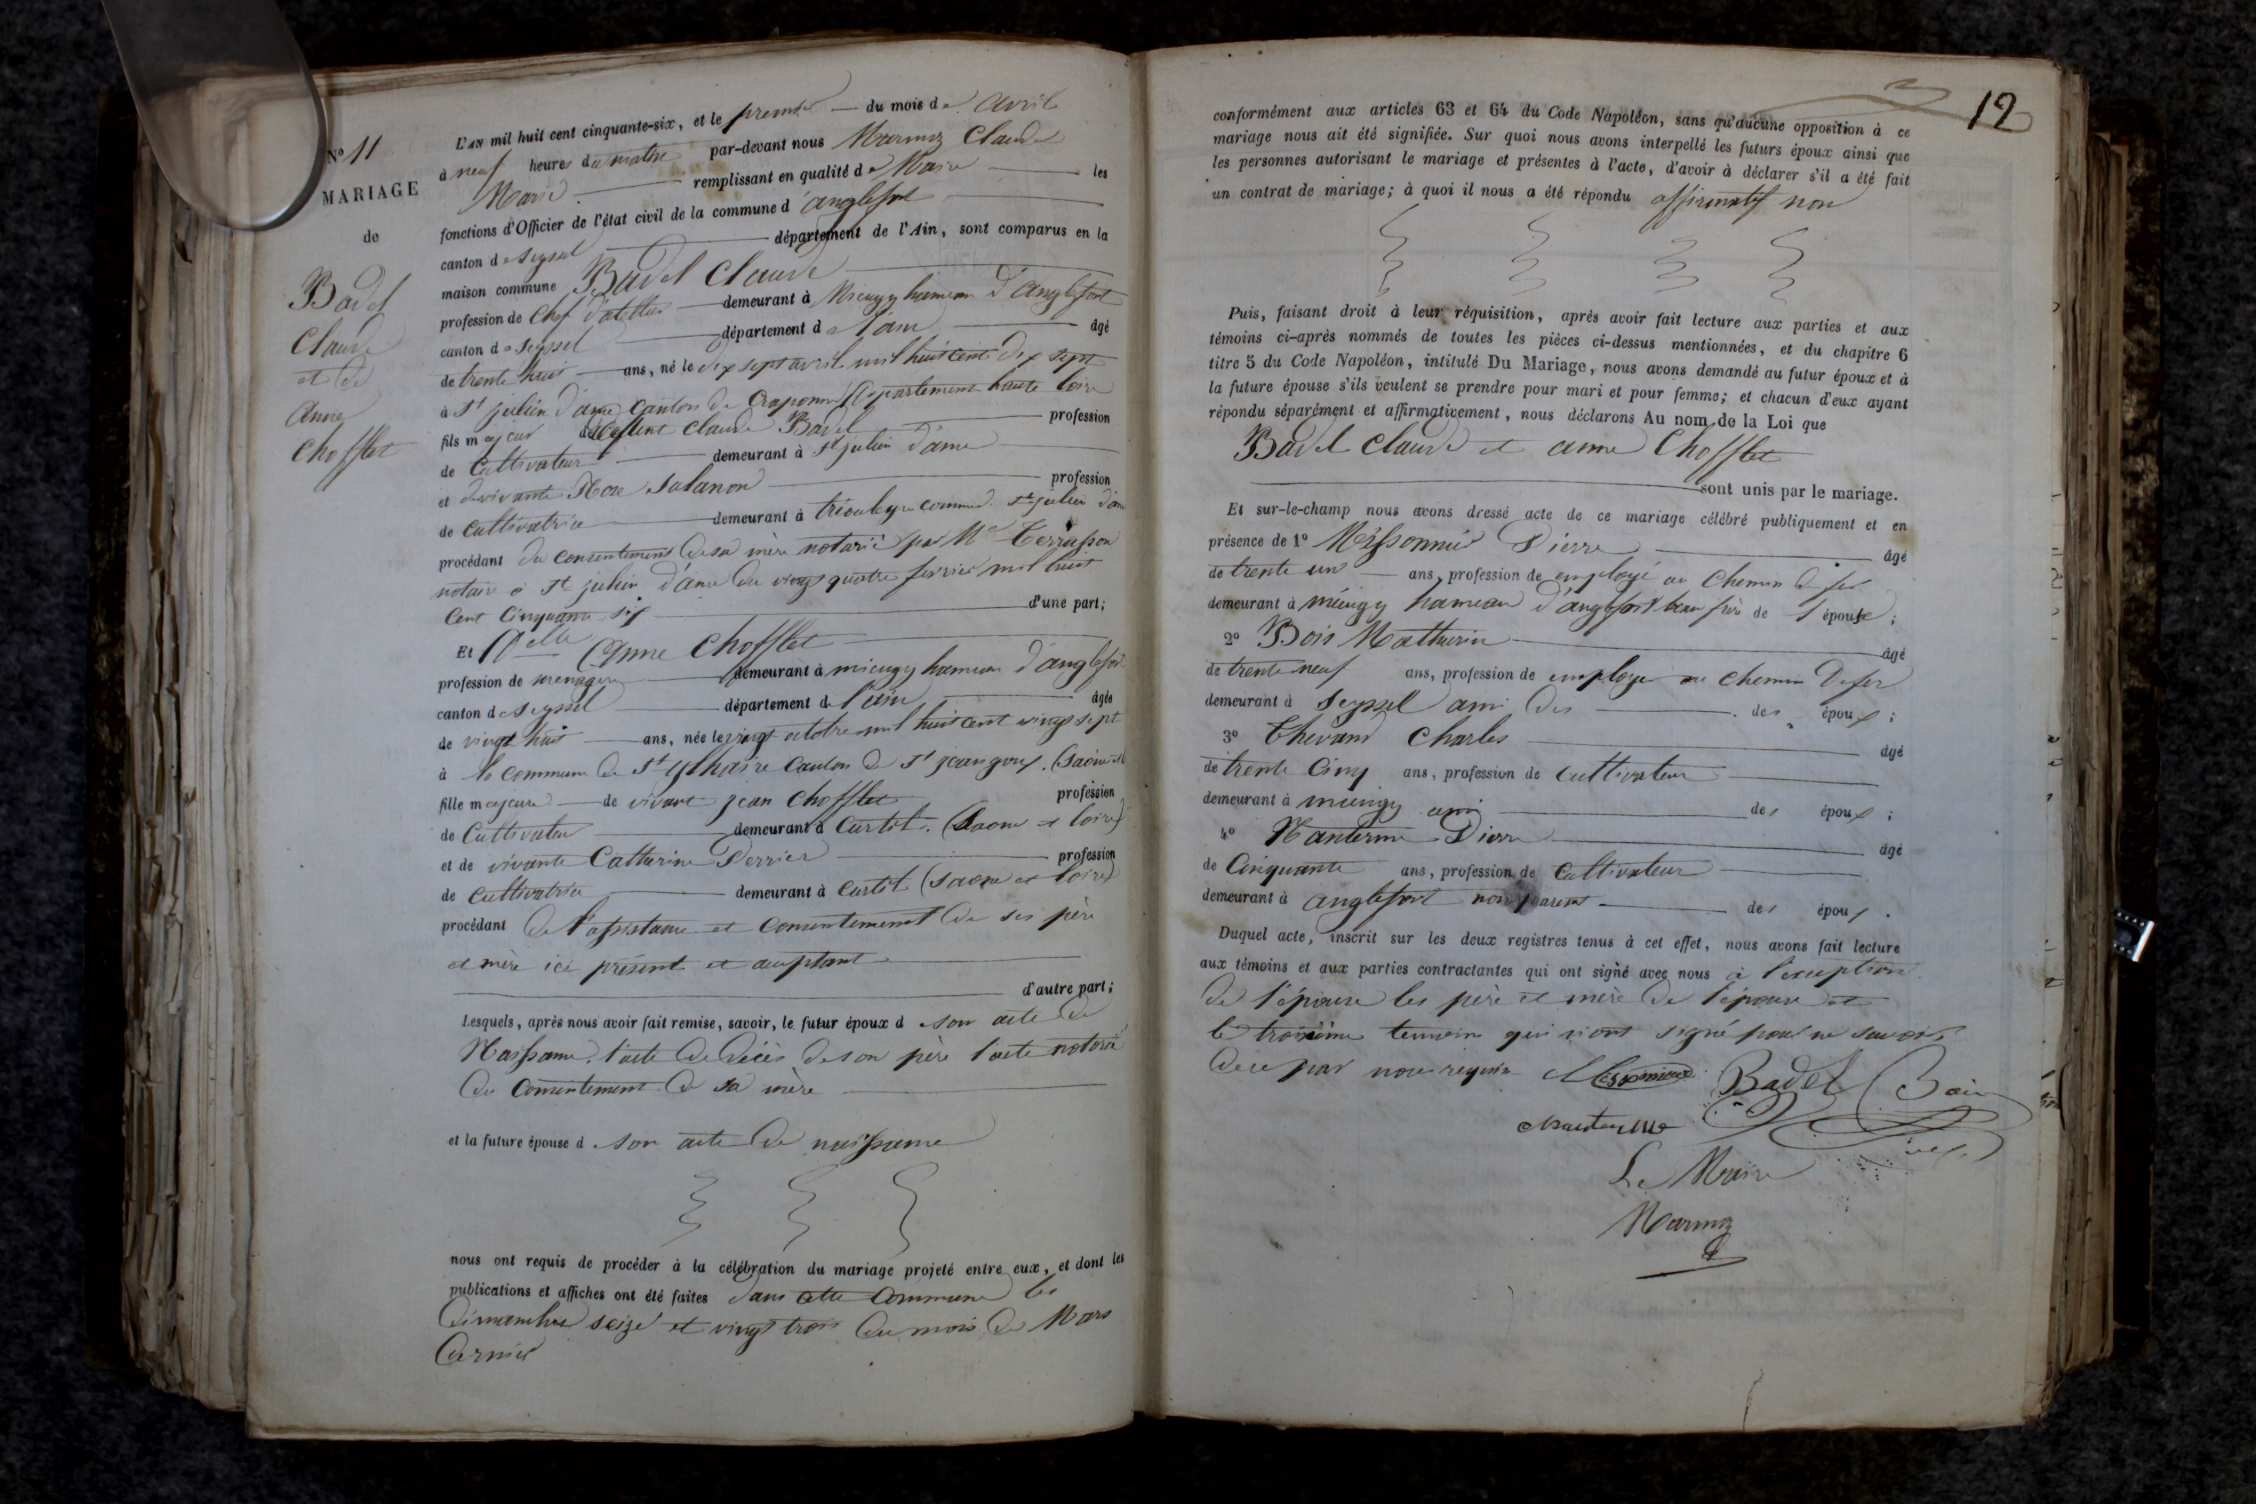 N° 11
MARIAGE
de
Badel
Claude
et de
Anne
Chofflet
L'AN mil huit cent cinquante-six, et le premier du mois de avril
à neuf heures du matin par-devant nous Marmoz Claude
Marie remplissant en qualité de Maire les
fonctions d'Officier de l'état civil de la commune d'anglefort
canton de Seyssel département de l'Ain, sont comparus en la
maison commune Badel Claude
profession de Chef d'atellier demeurant à Mieugy hameau d'anglefort
canton de Seyssel département de l'ain âgé
de trente huit ans, né le dix sept avril mil huit cent dix sept
à St julien d'ance Canton de Craponne Département haute loire
fils majeur de deffunt Claude Badel profession
de Cultivateur demeurant à St julien d'ance
et de vivante Rose Sabanon profession
de cultivatrice demeurant à commune St julien d'ance
procédant du consentement de sa mère notarié par Me Terrasson
notaire à St julien d'ance du vingt quatre fevrier mil huit
Cent Cinquante six d'une part;
Et Delle Anne Chofflet
profession de menagere demeurant à mieugy hameau d'anglefort
canton de Seyssel département de l'ain âgée
de vingt huit ans, née le vingt octobre mil huit cent vingt sept
à la commune de St ythaire Canton de St jeangoux (Saône et
fille majeure de vivant jean Chofflet profession
de Cultivateur demeurant à Curtil (Saone et loire)
et de vivante Catherine Perrier profession
de cultivatrice demeurant à Curtil (Saone et loire)
procédant de l'assistance et consentement de ses père
et mère ici présent et acceptant
d'autre part;
Lesquels, après nous avoir fait remise, savoir, le futur époux d son acte de
Naissance, l'acte de décès de son père l'acte notarié
du consentement de sa mère
et la future épouse d son acte de naissance
nous ont requis de procéder à la célébration du mariage projeté entre eux, et dont les
publications et affiches ont été faites dans cette commune les
dimanches seize et vingt trois du mois de Mars
dernier
12
conformément aux articles 63 et 64 du Code Napoléon, sans qu'aucune opposition à ce
mariage nous ait été signifiée. Sur quoi nous avons interpellé les futurs époux ainsi que
les personnes autorisant le mariage et présentes à l'acte, d'avoir à déclarer s'il a été fait
un contrat de mariage; à quoi il nous a été répondu affirmatif non
Puis, faisant droit à leur réquisition, après avoir fait lecture aux parties et aux
témoins ci-après nommés de toutes les pièces ci-dessus mentionnées, et du chapitre 6
titre 5 du Code Napoléon, intitulé Du Mariage, nous avons demandé au futur époux et à
la future épouse s'ils veulent se prendre pour mari et pour femme; et chacun d'eux ayant
répondu séparément et affirmativement, nous déclarons Au nom de la Loi que
Badel Claude et anne Chofflet
sont unis par le mariage.
Et sur-le-champ nous avons dressé acte de ce mariage célébré publiquement et en
présence de 1° Messonnier Pierre âgé
de trente un ans, profession de employé au Chemin de fer
demeurant à mieugy hameau d'anglefort beau frère de l'épouse;
2° Bois Mathurin âgé
de trente neuf ans, profession de employe au chemin de fer
demeurant à Seyssel ami des des époux;
3° Thevand Charles âgé
de trente Cinq ans, profession de cultivateur
demeurant à mieugy ami des époux;
4° Nanterme Pierre âgé
de Cinquante ans, profession de Cultivateur
demeurant à anglefort non parent des époux.
Duquel acte, inscrit sur les deux registres tenus à cet effet, nous avons fait lecture
aux témoins et aux parties contractantes qui ont signé avec nous à l'exception
de l'épouse les père et mère de l'épouse et
le troisième temoin qui n'ont signé pour ne savoir
de ce par nous requis Messonnier Badel Bois
Le Maire
Marmoz